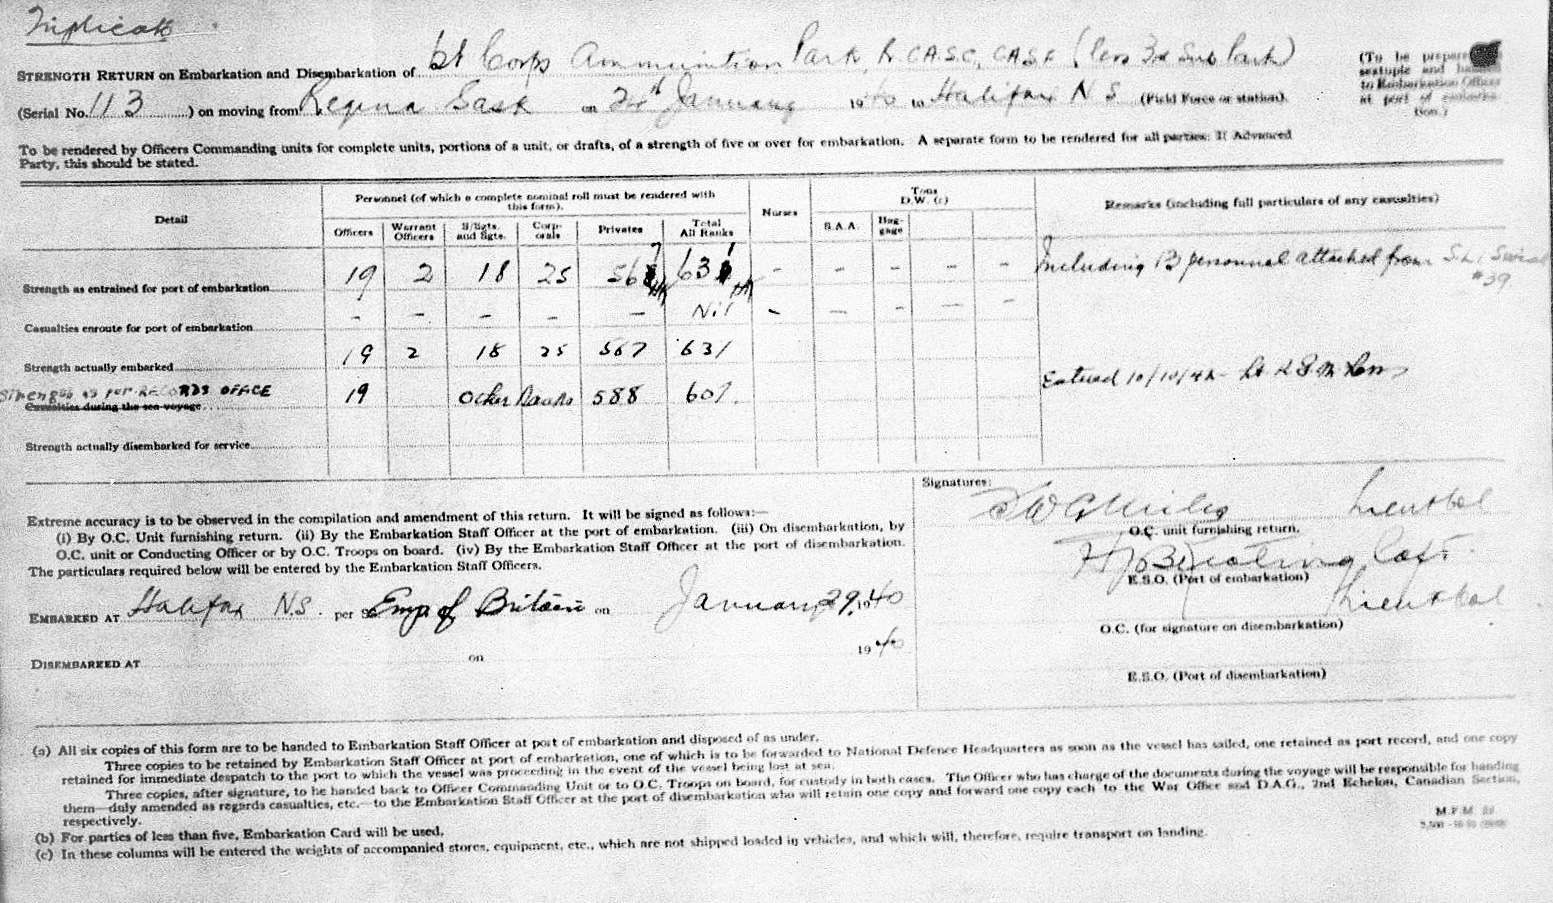 Triplicate
STRENGTH RETURN on Embarkation and Disembarkation of 1st Corps Ammunition Park, R.C.A.S.C., C.A.S.F. (less 3rd Sub Park)
(Serial No. 113) on moving from Regina Sask on 24th January 1940 to Halifax N S (Field Force or station).
(To be prepared
sextuple and handed
to Embarkation Officer
at port of embarka-
tion.)
To be rendered by Officers Commanding units for complete units, portions of a unit, or drafts, of a strength of five or over for embarkation. A separate form to be rendered for all parties: If Advanced
Party, this should be stated.
Detail
Personnel (of which a complete nominal roll must be rendered with
this form).
Officers Warrant Officers S/Sgts. and Sgts. Corp-orals Privates Total All Ranks
Nurses
Tons
D.W. (c)
S.A.A. Bag-gage
Remarks (including full particulars of any casualties)
Strength as entrained for port of embarkation 19 2 18 25 567 631 - - - - -
Including 13 personnel attached from Serial
#39
Casualties enroute for port of embarkation - - - - - Nil - - - - -
Strength actually embarked 19 2 18 25 567 631
Entered 10/10/42
Strength as per RECORDS OFFICE 19 Other Ranks 588 607.
Casualties during the sea voyage
Strength actually disembarked for service
Extreme accuracy is to be observed in the compilation and amendment of this return. It will be signed as follows:—
(i) By O.C. Unit furnishing return. (ii) By the Embarkation Staff Officer at the port of embarkation. (iii) On disembarkation, by
O.C. unit or Conducting Officer or by O.C. Troops on board. (iv) By the Embarkation Staff Officer at the port of disembarkation.
The particulars required below will be entered by the Embarkation Staff Officers.
EMBARKED AT Halifax N.S. per SS Emp of Britain on January 29, 1940
DISEMBARKED AT on 1940
Signatures:
Lieut Col
O.C. unit furnishing return.
Capt.
E.S.O. (Port of embarkation)
Lieut Col
O.C. (for signature on disembarkation)
E.S.O. (Port of disembarkation)
(a) All six copies of this form are to be handed to Embarkation Staff Officer at port of embarkation and disposed of as under.
Three copies to be retained by Embarkation Staff Officer at port of embarkation, one of which is to be forwarded to National Defence Headquarters as soon as the vessel has sailed, one retained as port record, and one copy
retained for immediate despatch to the port to which the vessel was proceeding in the event of the vessel being lost at sea.
Three copies, after signature, to be handed back to Officer Commanding Unit or to O.C. Troops on board, for custody in both cases. The Officer who has charge of the documents during the voyage will be responsible for handing
them—duly amended as regards casualties, etc.—to the Embarkation Staff Officer at the port of disembarkation who will retain one copy and forward one copy each to the War Office and D.A.G., 2nd Echelon, Canadian Section,
respectively.
(b) For parties of less than five, Embarkation Card will be used.
(c) In these columns will be entered the weights of accompanied stores, equipment, etc., which are not shipped loaded in vehicles, and which will, therefore, require transport on landing.
M.F.M.